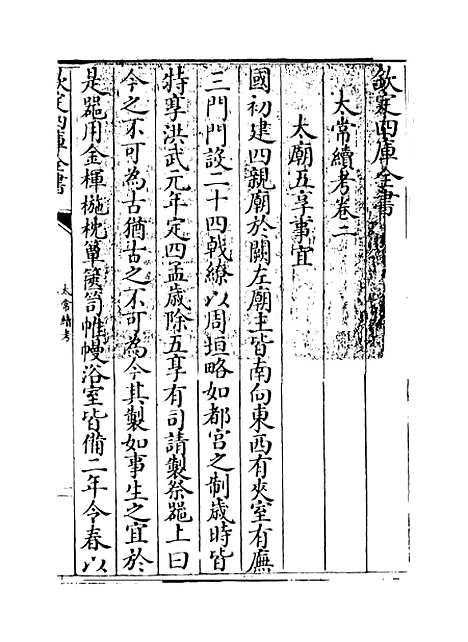 欽定四庫全書
太常續考卷二
太廟五享事宜
國初建四親廟於闕左廟主皆南向東西有夾室有廡
三門門設二十四戟繚以周垣略如都宮之制歲時皆
特享洪武元年定四孟歲除五享有司請製祭器上曰
今之不可為古猶古之不可為今其製如事生之宜於
是器用金楎椸枕簞篋笥帷幔浴室皆備二年今春以
欽定四庫全書
太常續考
一